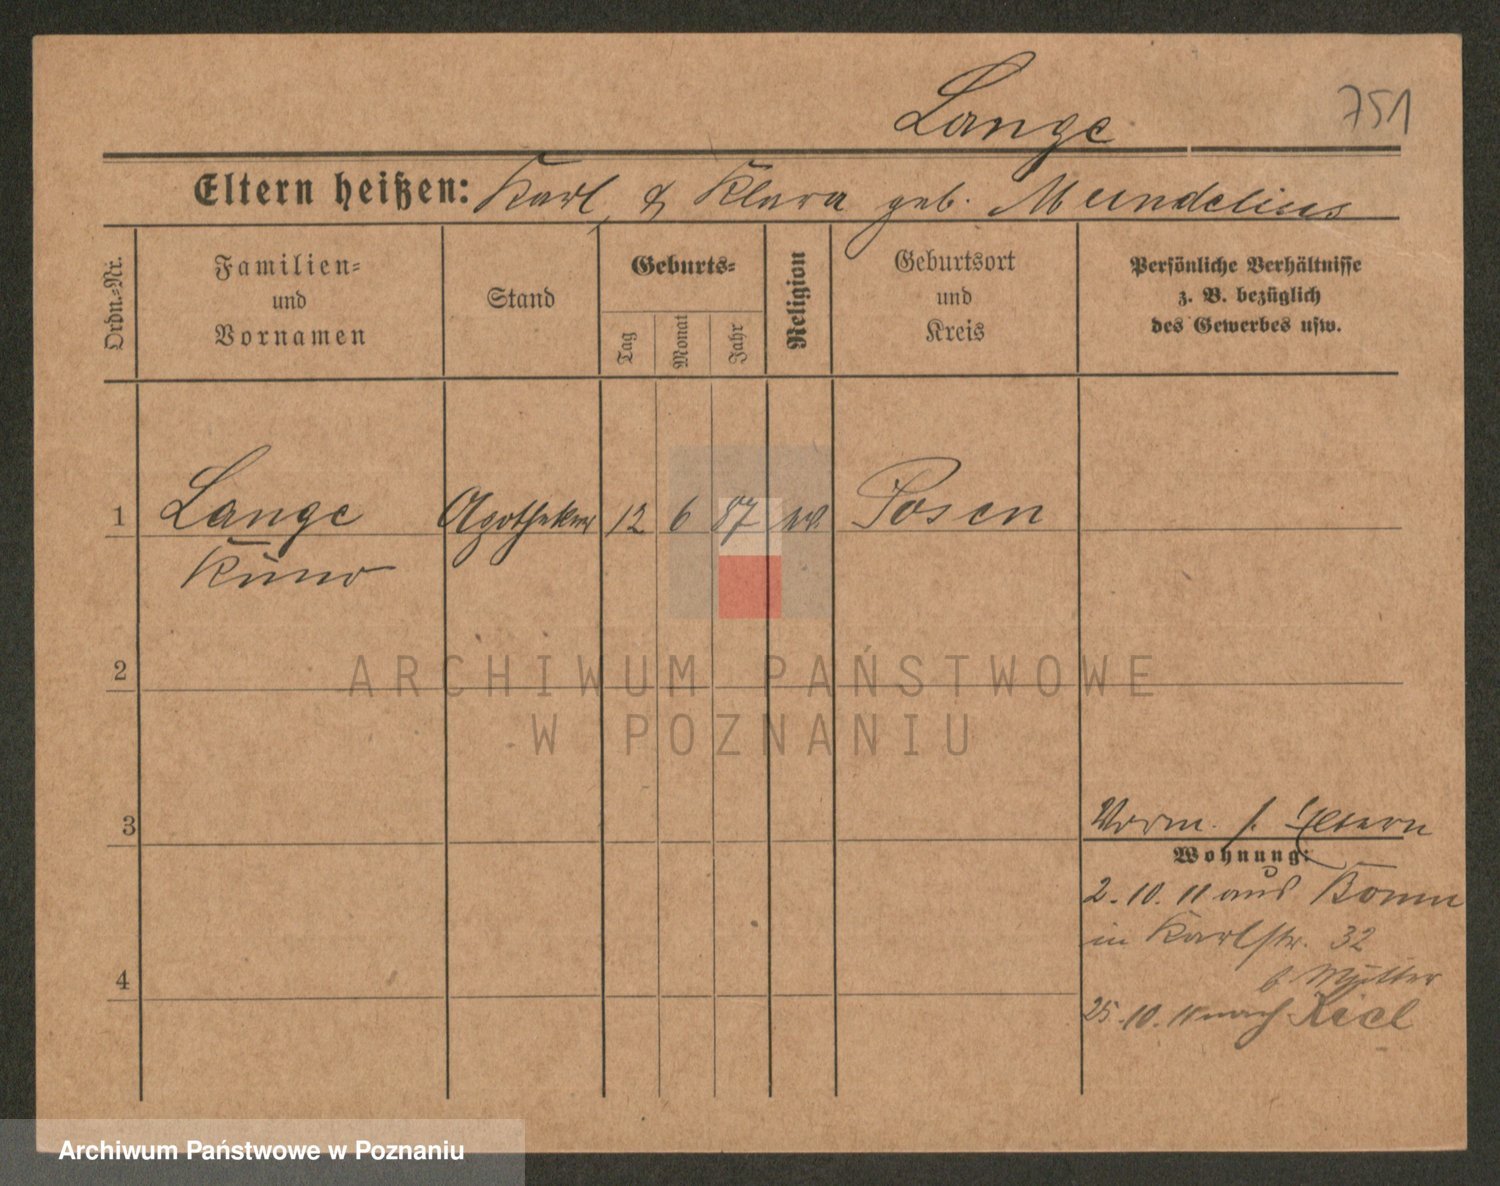 Lange
751
Eltern heißen: Karl & Klara geb. Mundelius
Ordn.-Nr.
Familien-
und
Vornamen
Stand
Geburts-
Tag
Monat
Jahr
Religion
Geburtsort
und
Kreis
Persönliche Verhältnisse
z. B. bezüglich
des Gewerbes usw.
1 Lange Apotheker 12 6 87 ev. Posen
Kuno
2
3
Vorm. s. Eltern
Wohnung:
2.10.11 aus Bonn
in Karlstr. 32
b Mutter
4
25.10.11 nach Kiel
ARCHIWUM PAŃSTWOWE
W POZNANIU
Archiwum Państwowe w Poznaniu